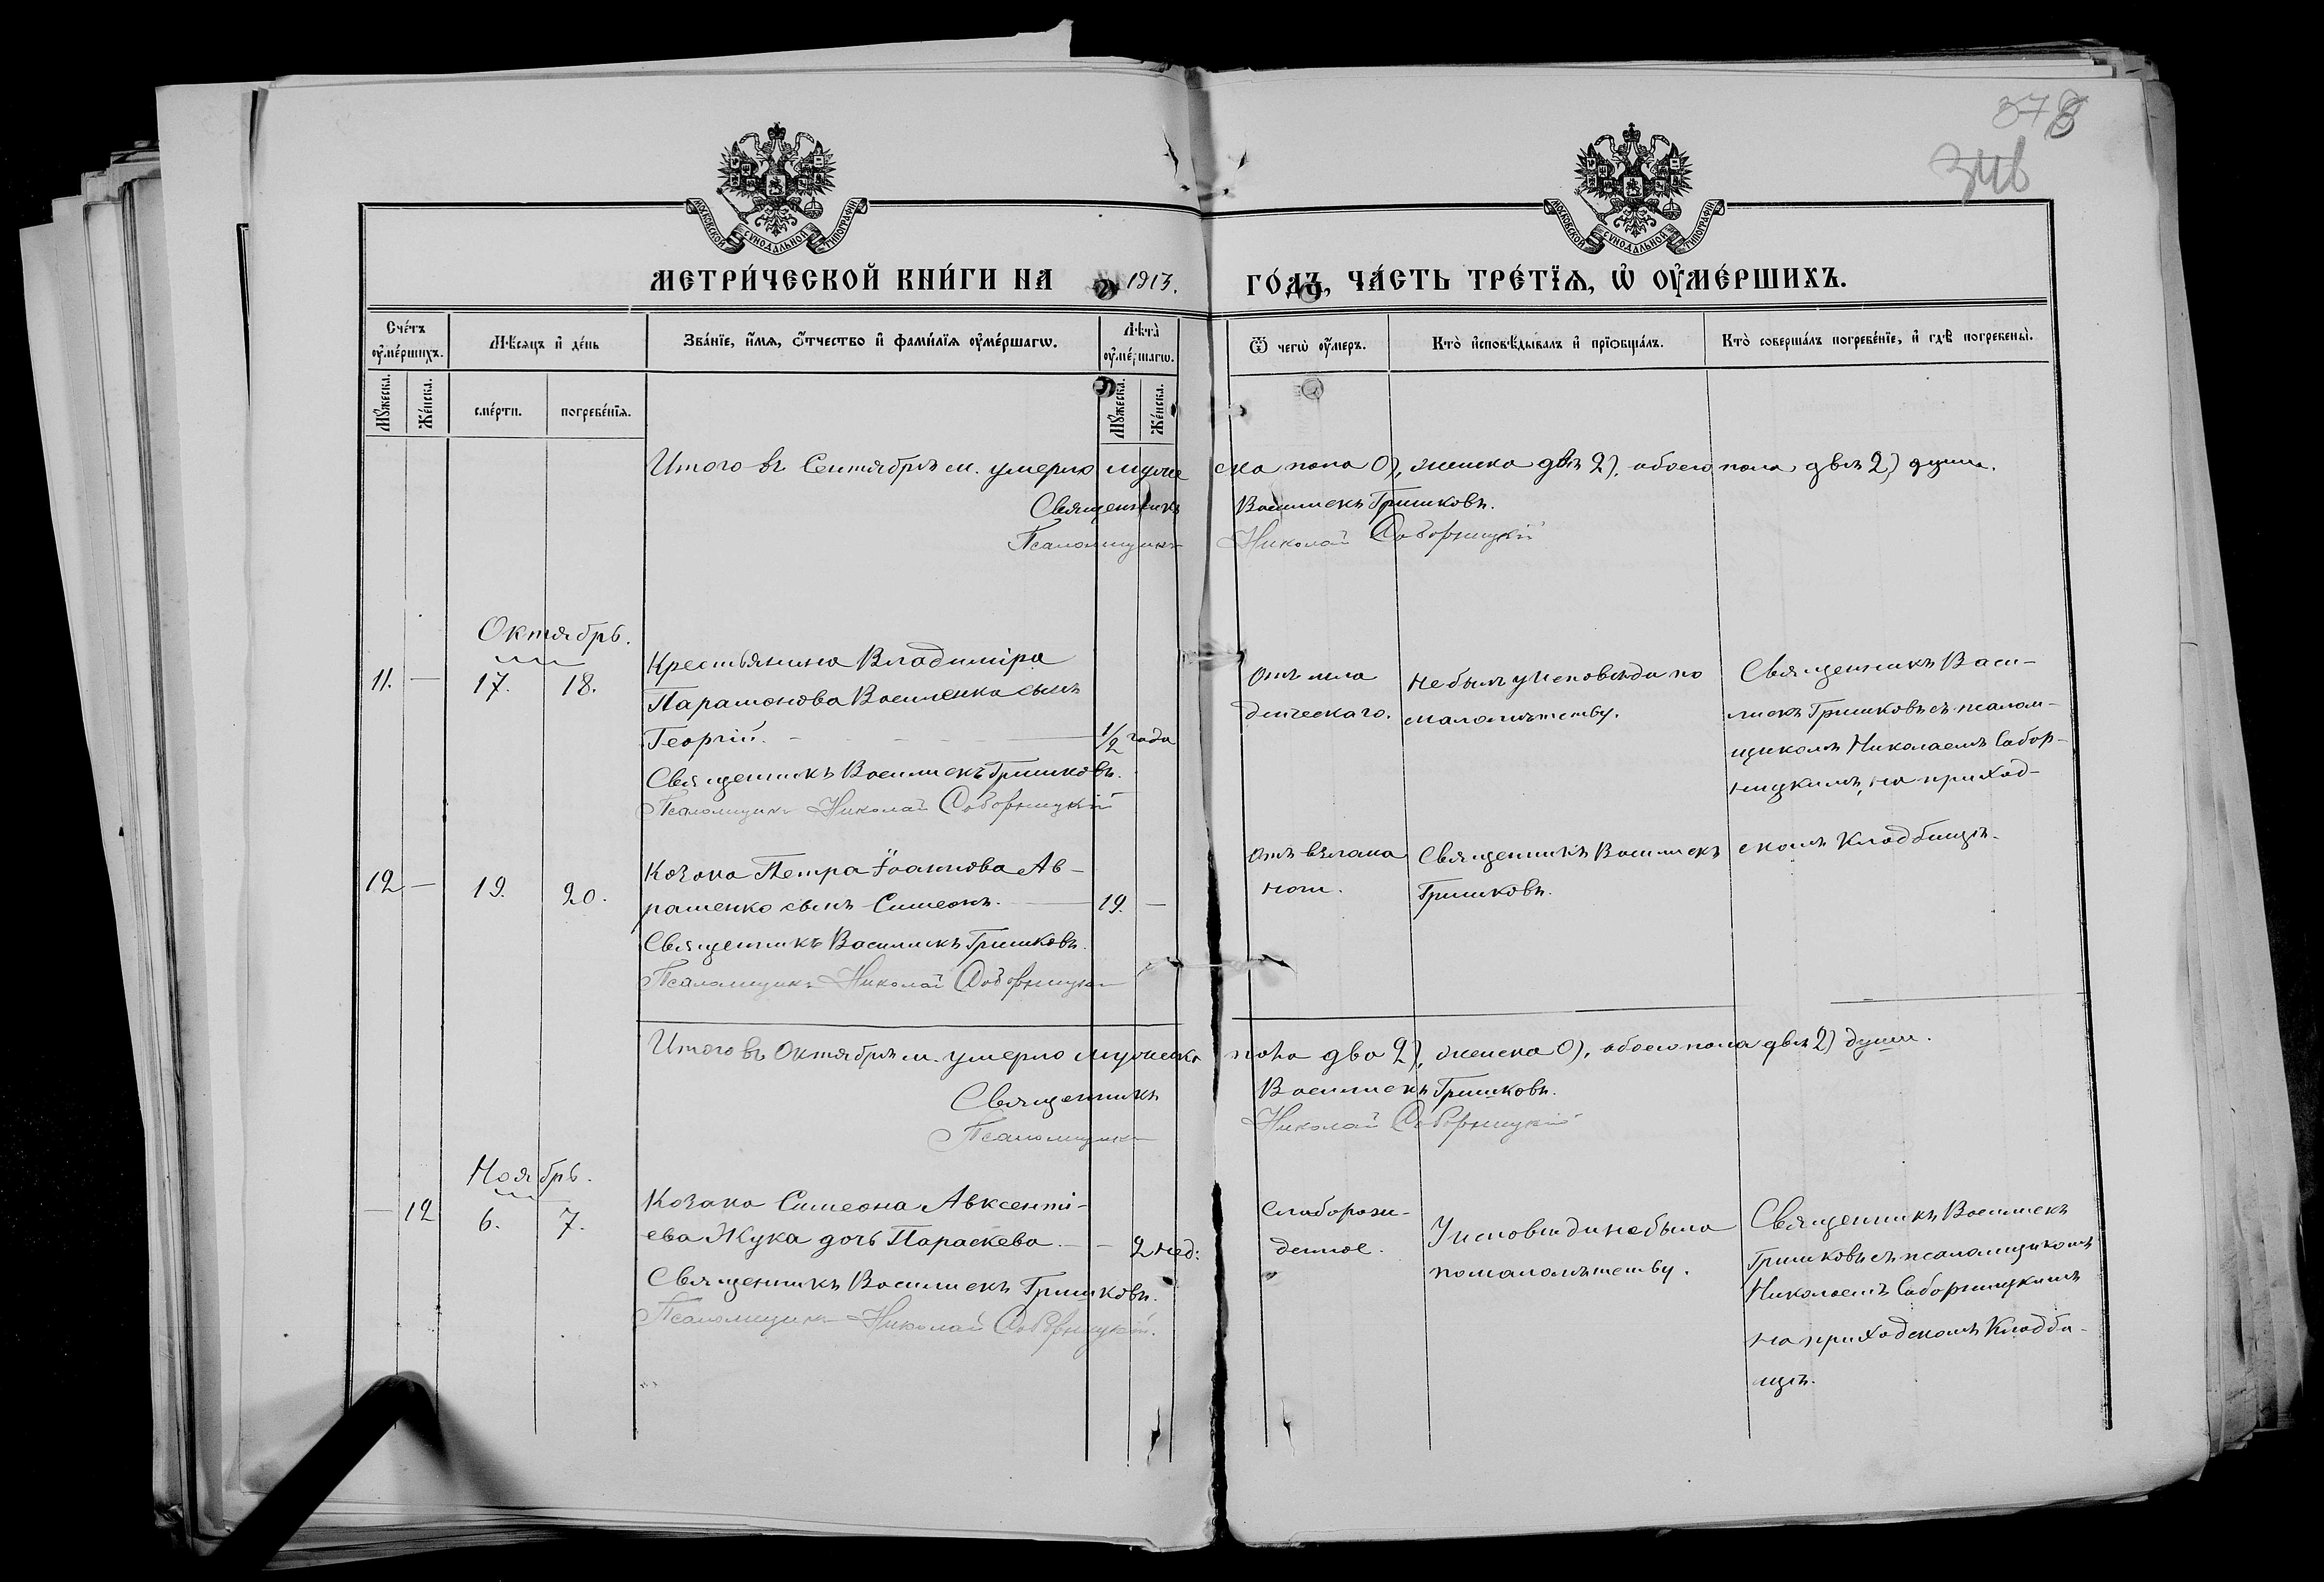 378
346
МОСКОВСКОЙ СѴНОДАЛЬНОЙ ТИПОГРАФІИ
МОСКОВСКОЙ СѴНОДАЛЬНОЙ ТИПОГРАФІИ
МЕТРИ́ЧЕСКОЙ КНИ́ГИ НА 1913. ГО́ДЪ, ЧА́СТЬ ТРЕ́ТЇѦ, Ѡ҆ ОУ҆МЕ́РШИХЪ.
Сче́тъ оу҆ме́ршихъ.
Мѣсяцъ и҆ де́нь
Зва́нїе, и҆́мѧ, ѻ҆́тчество и҆ фами́лїѧ оу҆ме́ршагѡ.
Лѣта̀ оу҆ме́ршагѡ.
Ѿ чегѡ̀ оу҆́меръ.
Кто̀ и҆сповѣ́дывалъ и҆ прїѡбща́лъ.
Кто̀ соверша́лъ погребе́нїе, и҆ гдѣ̀ погребены̀.
Мꙋ́жеска.
Же́нска.
сме́рти.
погребе́нїѧ.
Мꙋ́жеска.
Же́нска.
Итого въ Сентябрѣ м. умерло муже ска пола 0), женска двѣ 2), обоего пола двѣ 2) души.
Священникъ Василискъ Гришковъ.
Псаломщикъ Николай Соборницкій
Октябрь.
11. — 17. 18.
Крестьянина Владиміра
Парамонова Василенка сынъ
Георгій. — 1/2 года
Священникъ Василискъ Гришковъ.
Псаломщикъ Николай Соборницкій
Отъ
Не былъ у исповѣди по
малолѣтству.
Священникъ Васи-
лискъ Гришковъ съ псалом-
щикомъ Николаемъ Собор-
ницкимъ, на приход-
скомъ кладбищѣ.
12 — 19. 20.
Козака Петра Іоаннова Ав-
раменко сынъ Симеонъ. — 19. —
Священникъ Василискъ Гришковъ.
Псаломщикъ Николай Соборницкій
Отъ
Священникъ Василискъ
Гришковъ.
Итого въ Октябрѣ м. умерло мужеска пола два 2), женска 0), обоего пола двѣ 2) души.
Священникъ Василискъ Гришковъ.
Псаломщикъ Николай Соборницкій
Ноябрь.
— 12 6. 7.
Козака Симеона Авксенті-
ева Жука дочь Параскева. — 2 нед:
Священникъ Василискъ Гришковъ.
Псаломщикъ Николай Соборницкій.
Слаборож-
денное.
У исповѣди не была
по малолѣтству.
Священникъ Василискъ
Гришковъ съ псаломщикомъ
Николаемъ Соборницкимъ
на приходскомъ кладби-
щѣ.